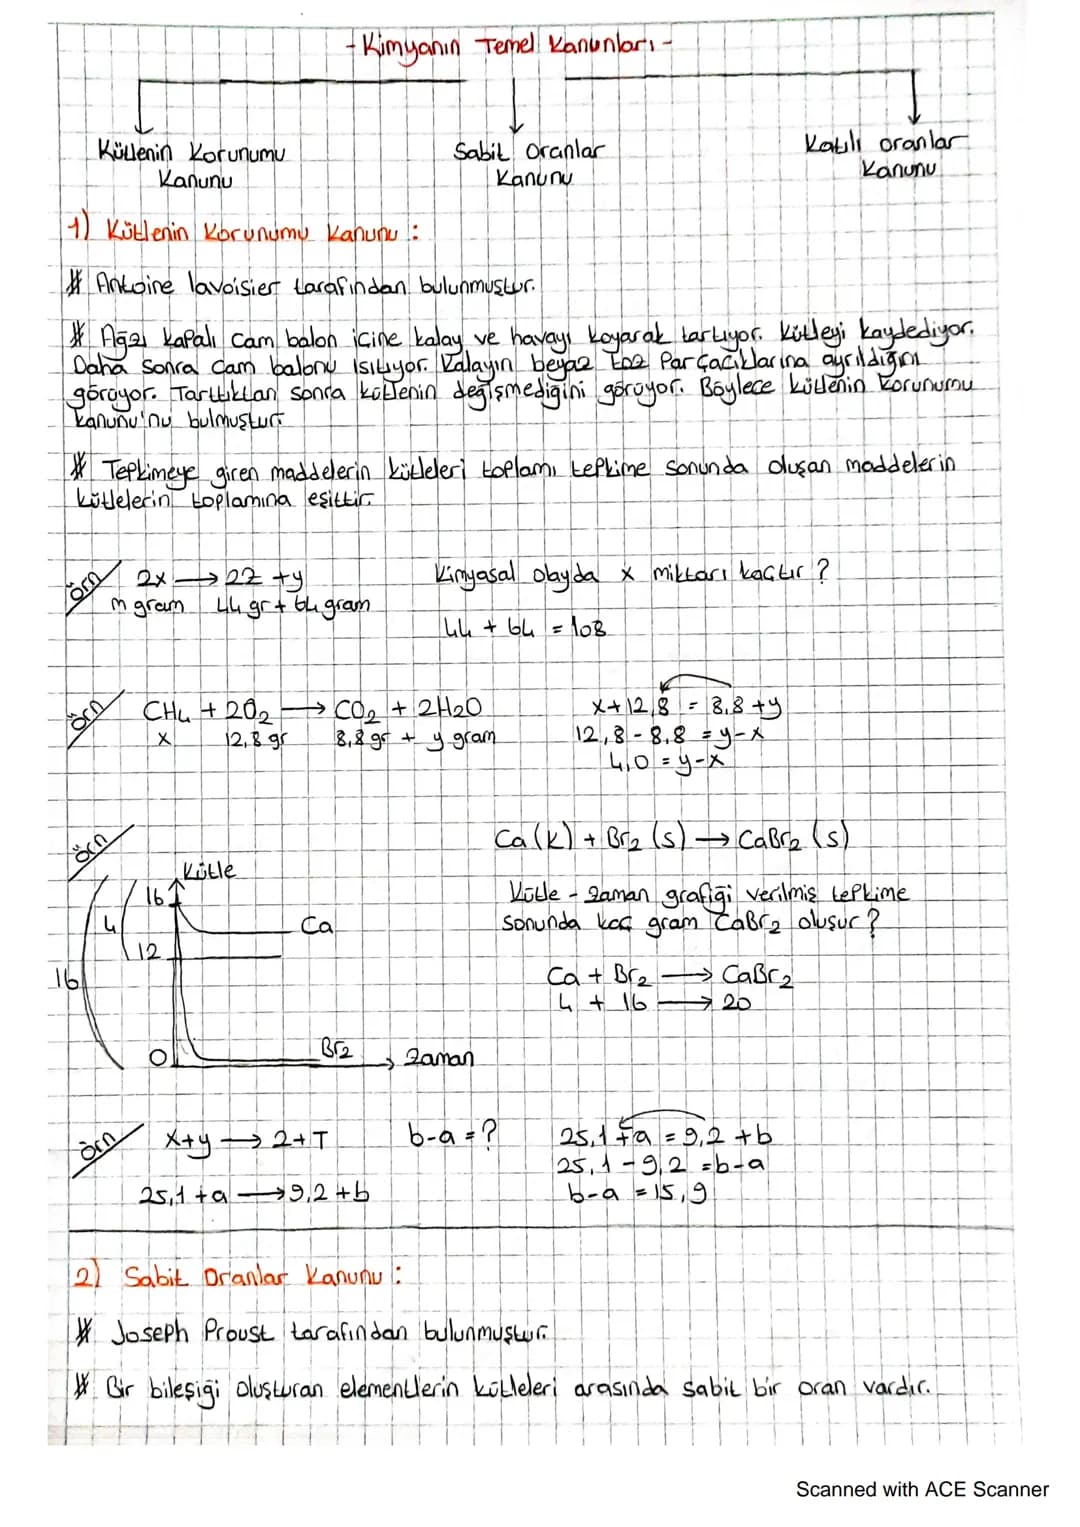 - Kimyanın Temel Kanunları -
Kütlenin Korunumu
Kanunu
Sabit Oranlar
Kanunu
Katlı oranlar
Kanunu
1) Kütlenin Korunumu Kanunu :
* Antoine lavoisier tarafından bulunmuştur.
* Ağzı kapalı cam balon içine kalay ve havayı koyarak tartıyor. Kütleyi kaydediyor.
Daha sonra cam balonu ısıtıyor. Kalayın beyaz toz parçacıklarına ayrıldığını
görüyor. Tarttıktan sonra kütlenin değişmediğini görüyor. Böylece kütlenin korunumu
kanunu'nu bulmuştur.
* Tepkimeye giren maddelerin kütleleri toplamı tepkime sonunda oluşan maddelerin
kütlelerin toplamına eşittir.
örn 2x → 2Z + y
m gram 44 gr + 64 gram
Kimyasal olayda x miktarı kaçtır ?
44 + 64 = 108
örn CH4 + 2O2 → CO2 + 2H2O
x 12,8 gr 8,8 gr + y gram
x + 12,8 = 8,8 + y
12,8 - 8,8 = y - x
4,0 = y - x
örn
Kütle
16
4
12
16
0
Ca
Br2
Zaman
Ca (k) + Br2 (s) → CaBr2 (s)
Kütle - zaman grafiği verilmiş tepkime
sonunda kaç gram CaBr2 oluşur ?
Ca + Br2 → CaBr2
4 + 16 → 20
örn x + y → 2 + T b-a = ?
25,1 + a → 9,2 + b
25,1 + a = 9,2 + b
25,1 - 9,2 = b - a
b - a = 15,9
2) Sabit Oranlar Kanunu :
* Joseph Proust tarafından bulunmuştur.
* Bir bileşiği oluşturan elementlerin kütleleri arasında sabit bir oran vardır.
Scanned with ACE Scanner